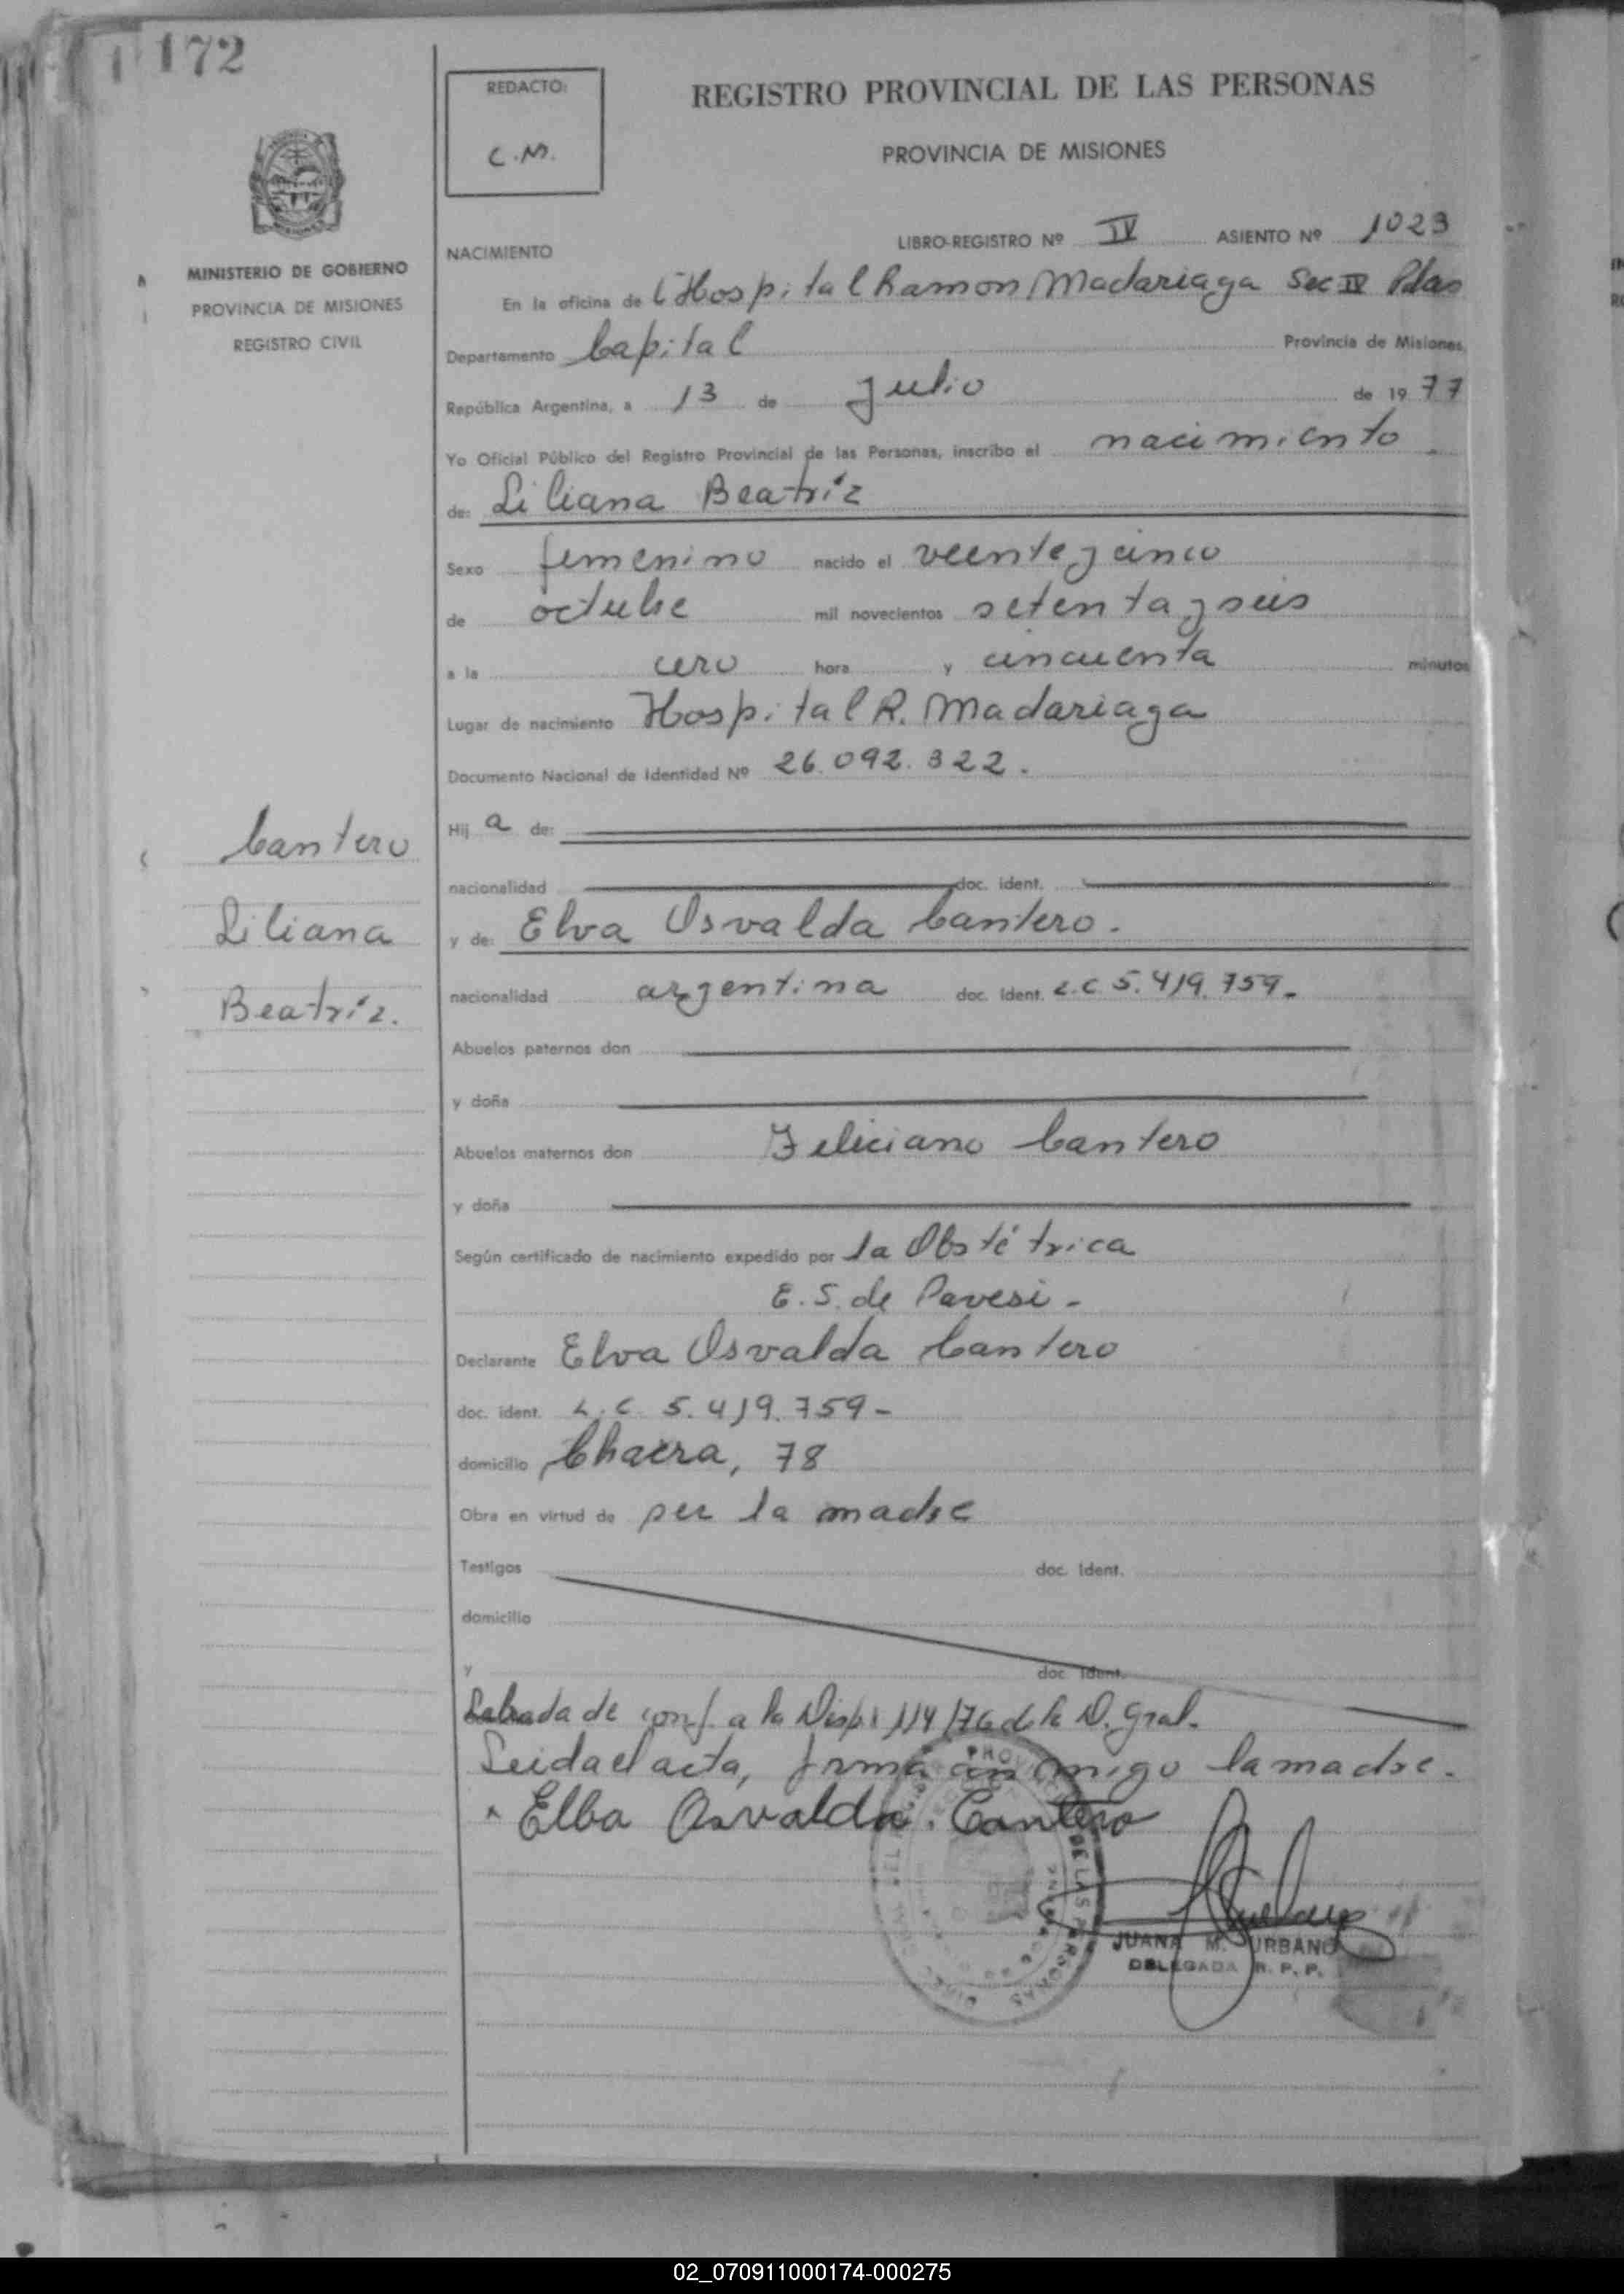 172
REDACTO:
C.M.
REGISTRO PROVINCIAL DE LAS PERSONAS
PROVINCIA DE MISIONES
MINISTERIO DE GOBIERNO
PROVINCIA DE MISIONES
REGISTRO CIVIL
LIBRO-REGISTRO Nº IV ASIENTO Nº 1023
NACIMIENTO
En la oficina de Hospital Ramon Madariaga Sec IV Pdas
Departamento Capital Provincia de Misiones,
República Argentina, a 13 de Julio de 1977
Yo Oficial Público del Registro Provincial de las Personas, inscribo el nacimiento
de: Liliana Beatríz
Sexo femenino nacido el veinte y cinco
de octubre mil novecientos setenta y seis
a la cero hora y cincuenta minutos
Lugar de nacimiento Hospital R. Madariaga
Documento Nacional de Identidad Nº 26.092.322.
Hij a de:
nacionalidad doc. ident.
y de: Elva Osvalda Cantero.
nacionalidad argentina doc. Ident. L.C 5.419.759-
Abuelos paternos don
y doña
Abuelos maternos don Feliciano Cantero
y doña
Según certificado de nacimiento expedido por la Obstétrica
E. S. de Pavesi-
Declarante Elva Osvalda Cantero
doc. ident. L.C. 5.419.759-
domicilio Chacra, 78
Obra en virtud de ser la madre
Testigos doc. Ident.
domicilio
y doc. Ident.
Labrada de conf. a la Disp. 114/76 de la D. Gral.
Leida el acta, firma conmigo la madre.
Elba Osvalda Cantero
JUANA M. URBANO
DELEGADA R. P. P.
Cantero
Liliana
Beatríz.
02_070911000174-000275